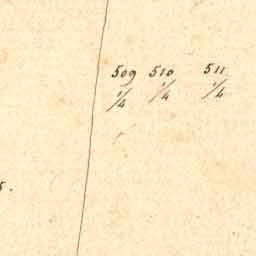 509 510 511
1/4 1/4 1/4